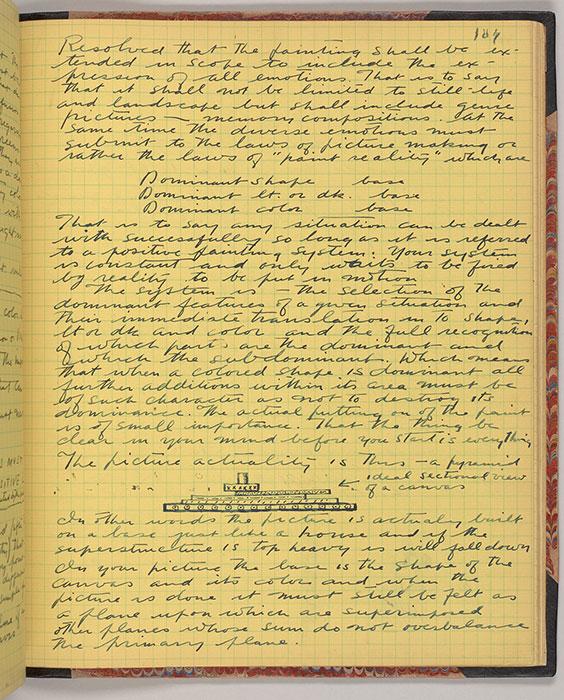 184
Resolved that the painting shall be ex-
tended in scope to include the ex-
pression of all emotions. That is to say
that it shall not be limited to still-life
and landscape but shall include genre
pictures — memory compositions. At the
same time the diverse emotions must
submit to the laws of picture making or
rather the laws of "paint reality" which are
Dominant shape base
Dominant lt. or dk. base
Dominant color base
That is to say any situation can be dealt
with successfully so long as it is referred
to a positive painting system. Your system
is constant and only waits to be fired
by reality to be put in motion
The system — the selection of the
dominant features of a given situation and
their immediate translation in to shape,
lt or dk and color and the full recognition
of which parts are the dominant and
which the subdominant. Which means
that when a colored shape is dominant all
further additions within its area must be
of such character as not to destroy its
dominance. The actual putting on of the paint
is of small importance. That the thing be
clear in your mind before you start is everything
The picture actuality is thus — a pyramid
ideal sectional view
of a canvas
In other words the picture is actually built
on a base just like a house and if the
superstructure is top heavy is will fall down
In your picture the base is the shape of the
canvas and its color and when the
picture is done it must still be felt as
a plane upon which are superimposed
other planes whose sum do not overbalance
the primary plane.